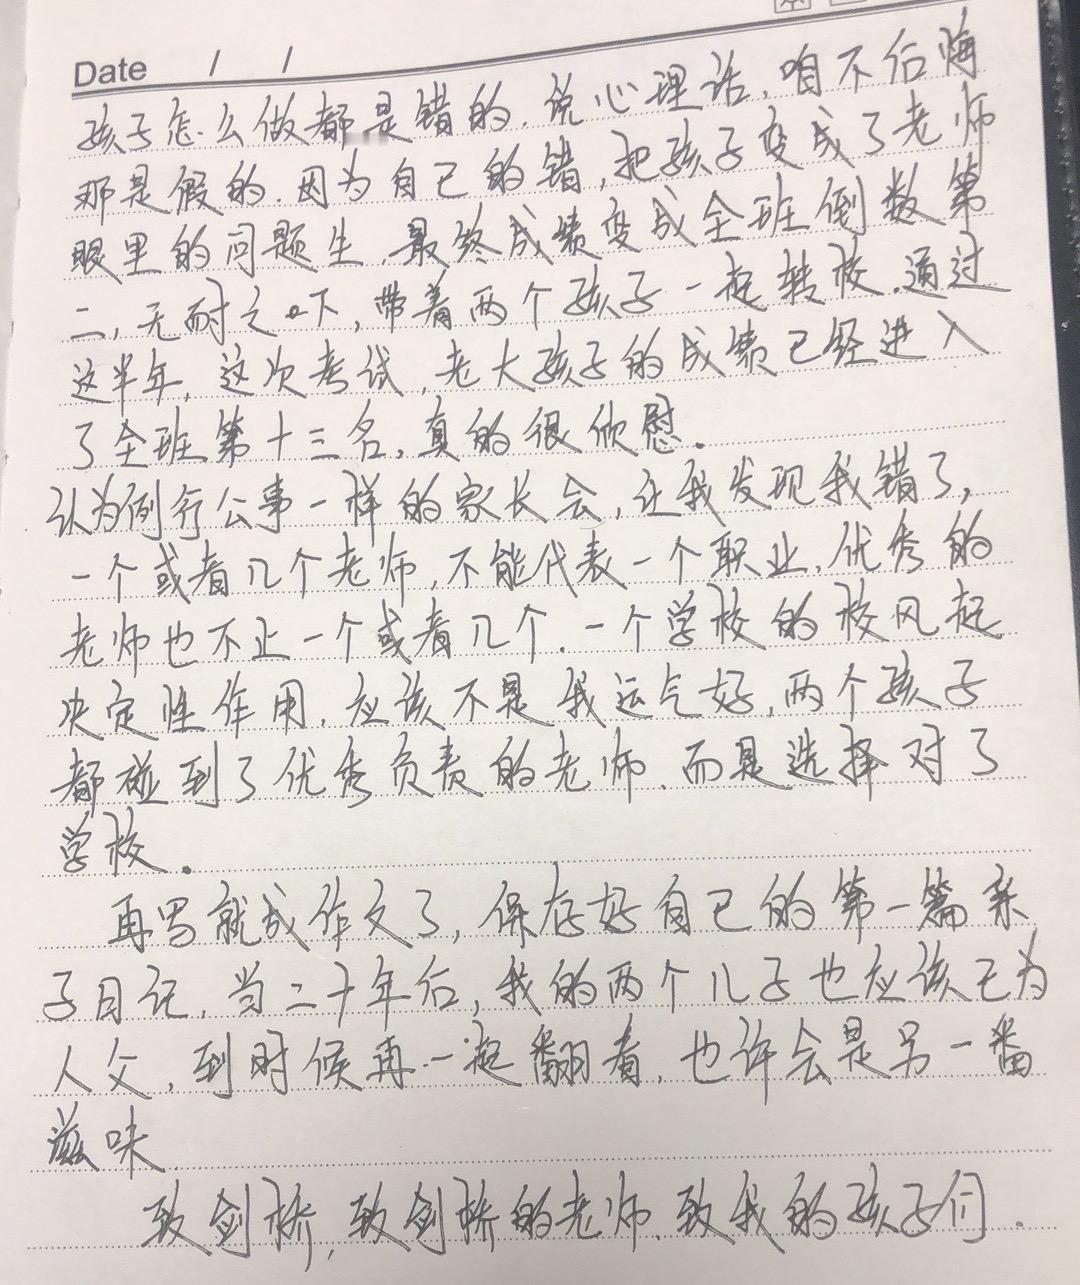 Date / /
孩子怎么做都是错的.说心理话,咱不后悔
那是假的.因为自己的错,把孩子变成了老师
眼里的问题生,最终成绩变成全班倒数第
二,无耐之下,带着两个孩子一起转校.通过
这半年,这次考试,老大孩子的成绩已经进入
了全班第十三名,真的很欣慰.
认为例行公事一样的家长会,让我发现我错了,
一个或者几个老师,不能代表一个职业,优秀的
老师也不止一个或者几个.一个学校的校风起
决定性作用,应该不是我运气好,两个孩子
都碰到了优秀负责的老师.而是选择对了
学校.
再写就成作文了,保存好自己的第一篇亲
子日记,当二十年后,我的两个儿子也应该已为
人父,到时候再一起翻看,也许会是另一番
滋味.
致剑桥,致剑桥的老师.致我的孩子们.